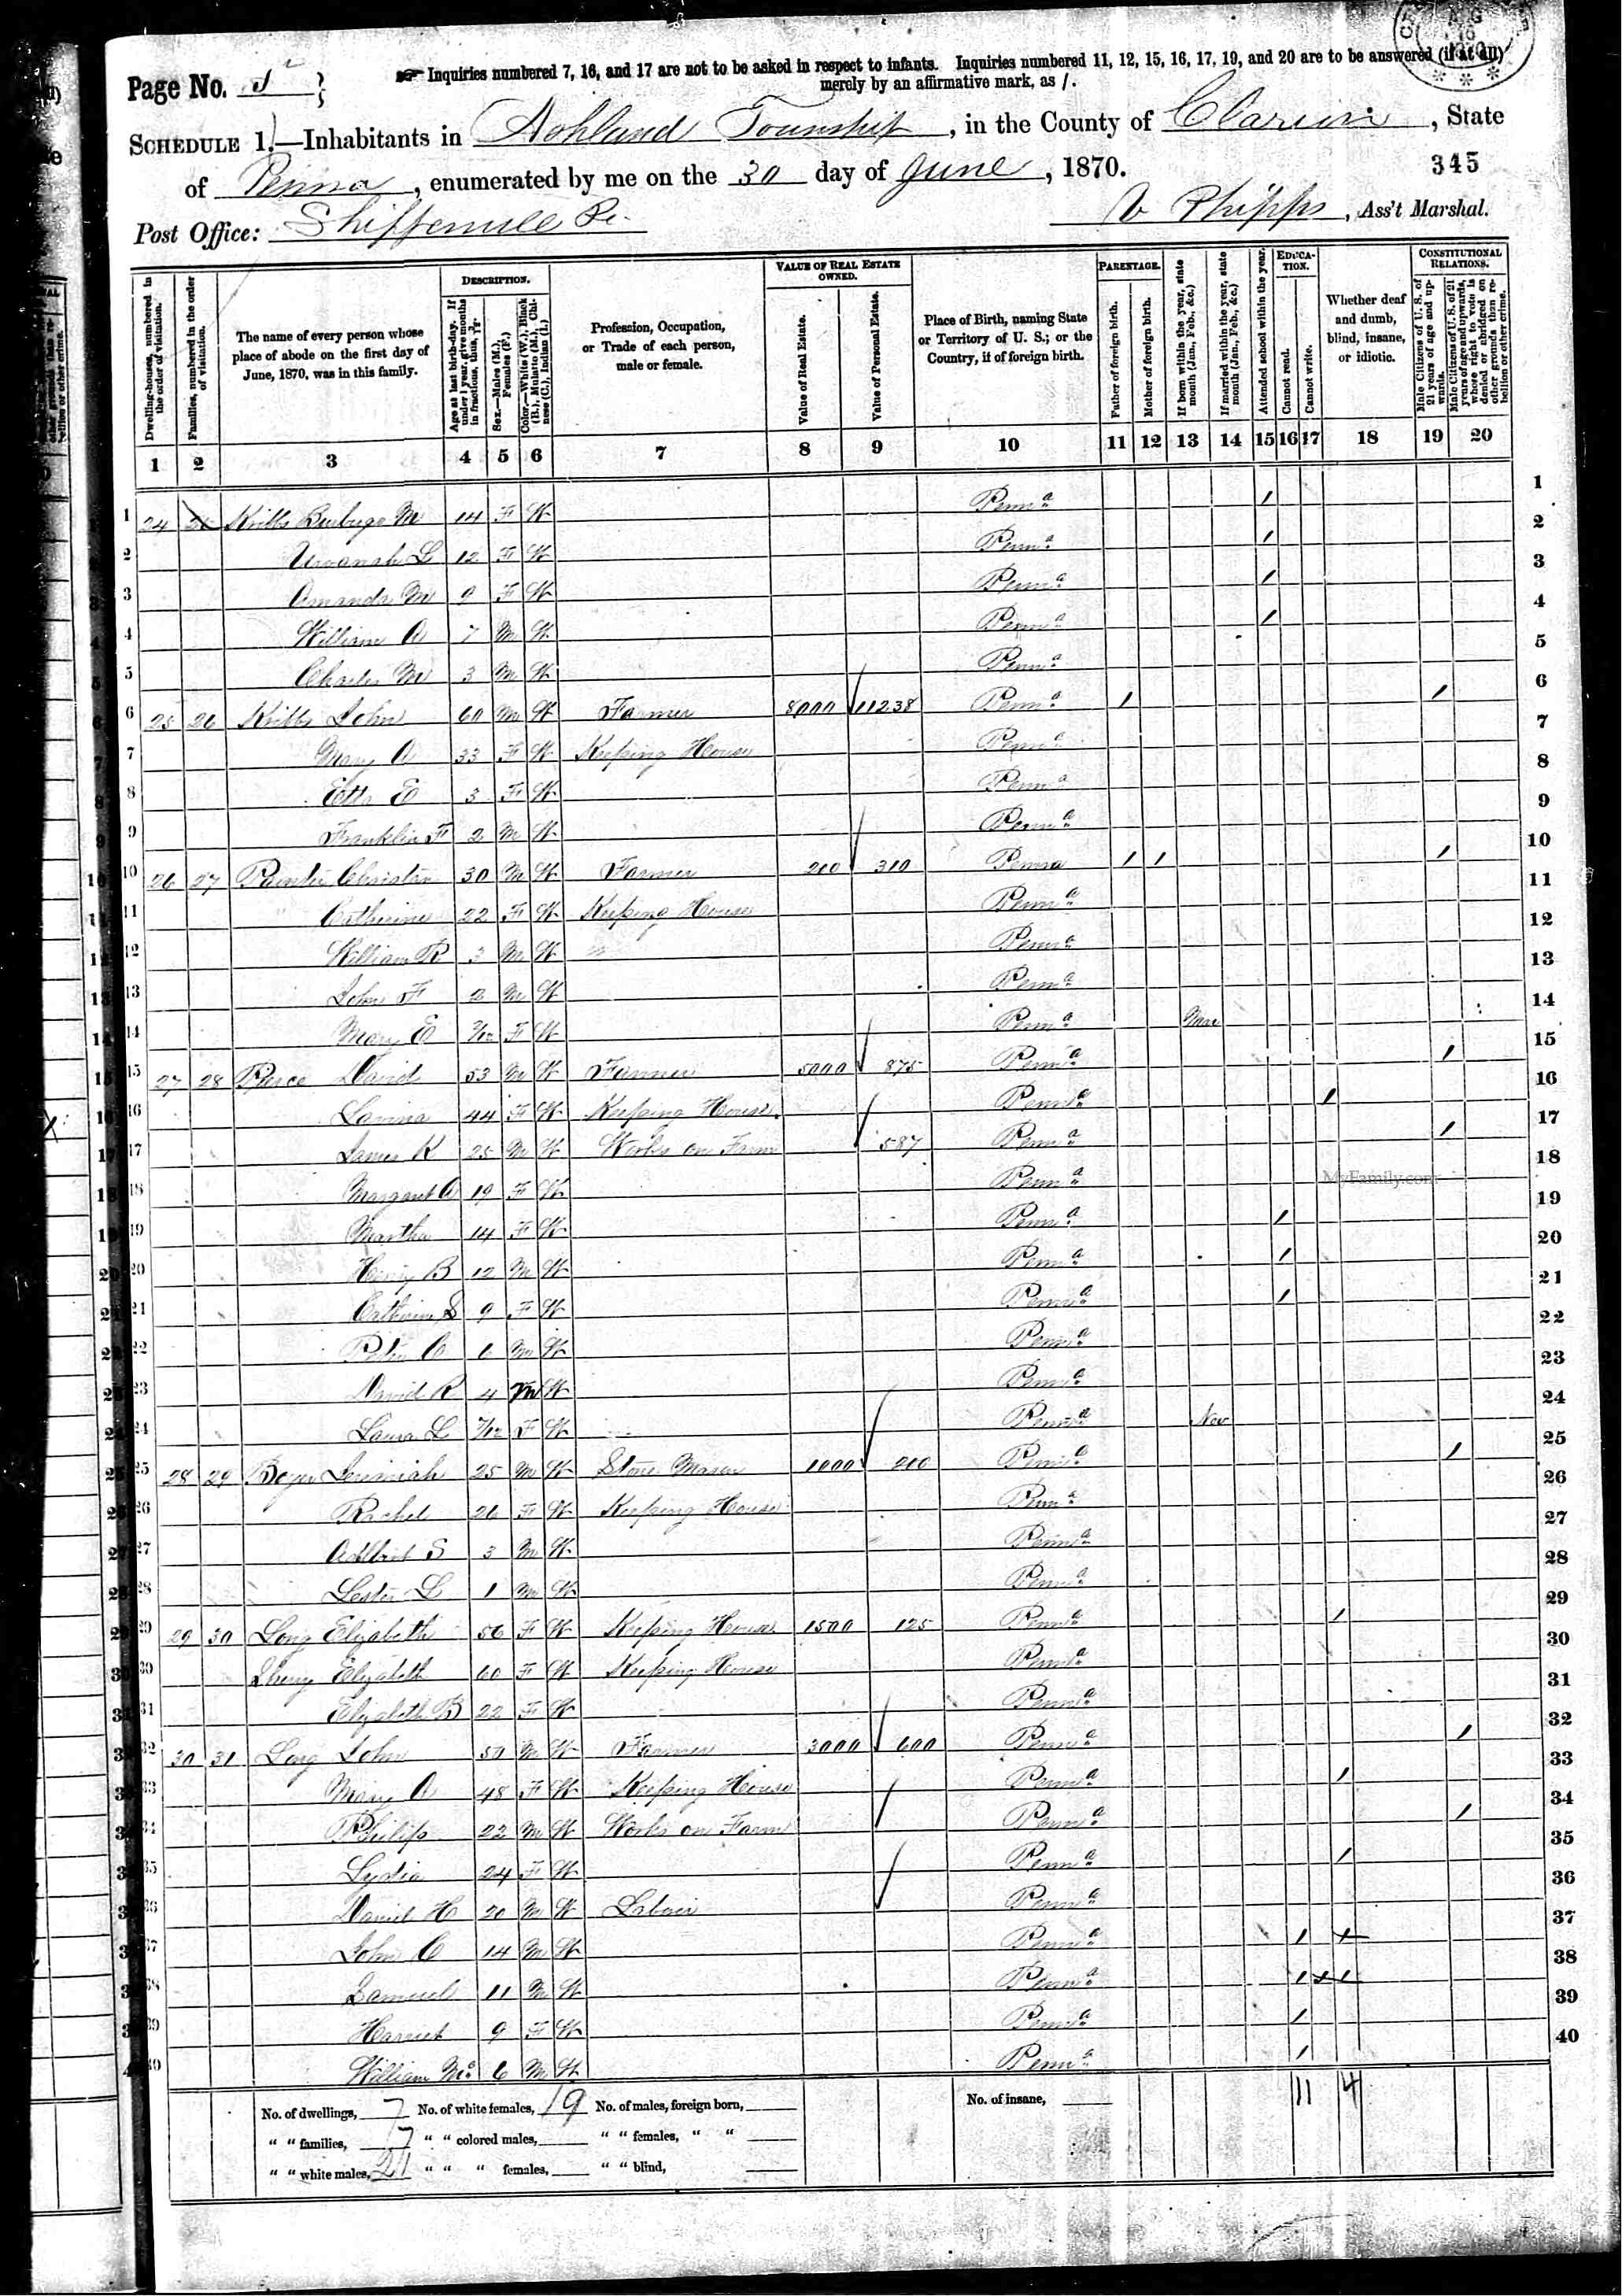 Page No. 5
Inquiries numbered 7, 16, and 17 are not to be asked in respect to infants. Inquiries numbered 11, 12, 15, 16, 17, 19, and 20 are to be answered (if at all)
merely by an affirmative mark, as /.
SCHEDULE 1.—Inhabitants in Ashland Township, in the County of Clarion, State
of Penna, enumerated by me on the 30 day of June, 1870.
345
Post Office: Shippenville Pa.
Phipps, Ass't Marshal.
Dwelling-houses, numbered in the order of visitation.
Families, numbered in the order of visitation.
The name of every person whose place of abode on the first day of June, 1870, was in this family.
DESCRIPTION.
Age at last birth-day. If under 1 year, give months in fractions, thus, 3/12.
Sex.—Males (M.), Females (F.)
Color.—White (W.), Black (B.), Mulatto (M.), Chinese (C.), Indian (I.)
Profession, Occupation, or Trade of each person, male or female.
VALUE OF REAL ESTATE OWNED.
Value of Real Estate.
Value of Personal Estate.
Place of Birth, naming State or Territory of U. S.; or the Country, if of foreign birth.
PARENTAGE.
Father of foreign birth.
Mother of foreign birth.
If born within the year, state month (Jan., Feb., &c.)
If married within the year, state month (Jan., Feb., &c.)
Attended school within the year.
EDUCATION.
Cannot read.
Cannot write.
Whether deaf and dumb, blind, insane, or idiotic.
CONSTITUTIONAL RELATIONS.
Male Citizens of U. S. of 21 years of age and upwards.
Male Citizens of U. S. of 21 years of age and upwards, whose right to vote is denied or abridged on other grounds than rebellion or other crime.
1 2 3 4 5 6 7 8 9 10 11 12 13 14 15 16 17 18 19 20
1 24 Kribbs M 14 F W Penna / 1
2 L 12 F W Penna / 2
3 Amanda M 9 F W Penna / 3
4 William A 7 M W Penna / 4
5 Charles M 3 M W Penna 5
6 25 26 Kribbs John 60 M W Farmer 8000 11238 Penna / / 6
7 Mary A 33 F W Keeping House Penna 7
8 Etta E 3 F W Penna 8
9 Franklin F 2 M W Penna 9
10 26 27 Painter Christian 30 M W Farmer 200 310 Penna / / / 10
11 Catherine 22 F W Keeping House Penna 11
12 William R 3 M W Penna 12
13 John F 2 M W Penna 13
14 Mary E 3/12 F W Penna Mar 14
15 27 28 Pierce David 53 M W Farmer 5000 875 Penna / 15
16 Lavina 44 F W Keeping House Penna / 16
17 James K 25 M W Works on Farm 587 Penna / 17
18 Margaret A 19 F W Penna 18
19 Martha 14 F W Penna / 19
20 Henry B 12 M W Penna / 20
21 Catharine S 9 F W Penna / 21
22 Peter C 6 M W Penna 22
23 David R 4 M W Penna 23
24 Laura L 7/12 F W Penna Nov 24
25 28 29 Boyer Jeremiah 25 M W Stone Mason 1000 200 Penna / 25
26 Rachel 26 F W Keeping House Penna 26
27 S 3 M W Penna 27
28 Lester L 1 M W Penna 28
29 29 30 Long Elizabeth 56 F W Keeping House 1500 125 Penna / 29
30 Elizabeth 60 F W Keeping House Penna 30
31 Elizabeth B 22 F W Penna 31
32 30 31 Long John 50 M W Farmer 3000 600 Penna / 32
33 Mary A 48 F W Keeping House Penna / 33
34 Philip 22 M W Works on Farm Penna / 34
35 Lydia 24 F W Penna / 35
36 Daniel H 20 M W Labour Penna 36
37 John C 14 M W Penna / 37
38 Samuel 11 M W Penna / 38
39 Harriet 9 F W Penna / 39
40 William Mc 6 M W Penna / 40
MyFamily.com
No. of dwellings, 7 No. of white females, 19 No. of males, foreign born, No. of insane, 11 4
" " families, 7 " " colored males, " " females, " "
" " white males, 21 " " " females, " " blind,